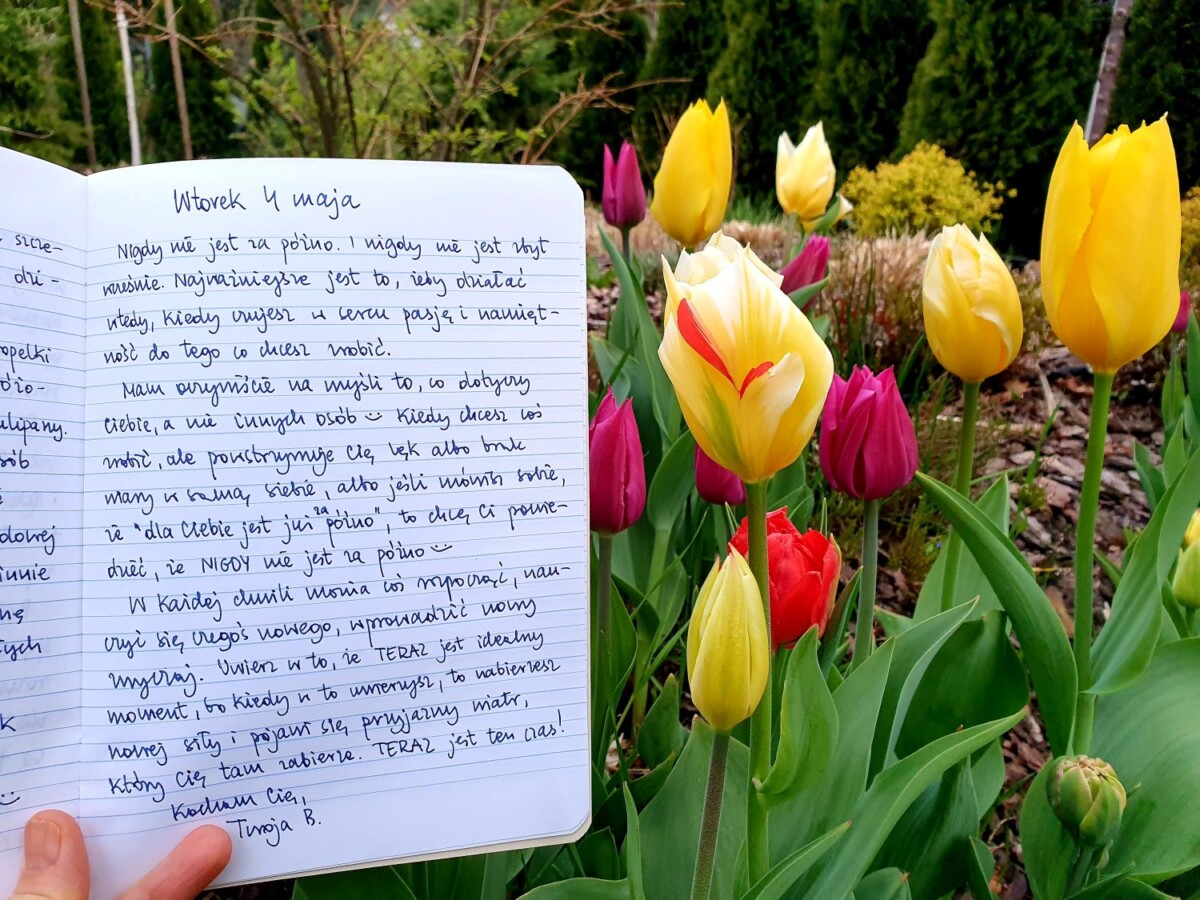 szcze-
dzi-
opelki
ózo-
ulipany.
sób
dowej
innie
nę
tych
k
Wtorek 4 maja
Nigdy nie jest za późno. I nigdy nie jest zbyt
wcześnie. Najważniejsze jest to, żeby działać
wtedy, kiedy czujesz w sercu pasję i namięt-
ność do tego co chcesz zrobić.
Mam oczywiście na myśli to, co dotyczy
Ciebie, a nie innych osób :) Kiedy chcesz coś
zrobić, ale powstrzymuje Cię lęk albo brak
wiary w samą siebie, albo jeśli mówisz sobie,
że "dla Ciebie jest już za późno", to chcę Ci powie-
dzieć, że NIGDY nie jest za późno :)
W każdej chwili można coś rozpocząć, nau-
czyć się czegoś nowego, wprowadzić nowy
zwyczaj. Uwierz w to, że TERAZ jest idealny
moment, bo kiedy w to uwierzysz, to nabierzesz
nowej siły i pojawi się przyjazny wiatr,
który Cię tam zabierze. TERAZ jest ten czas!
Kocham Cię,
Twoja B.